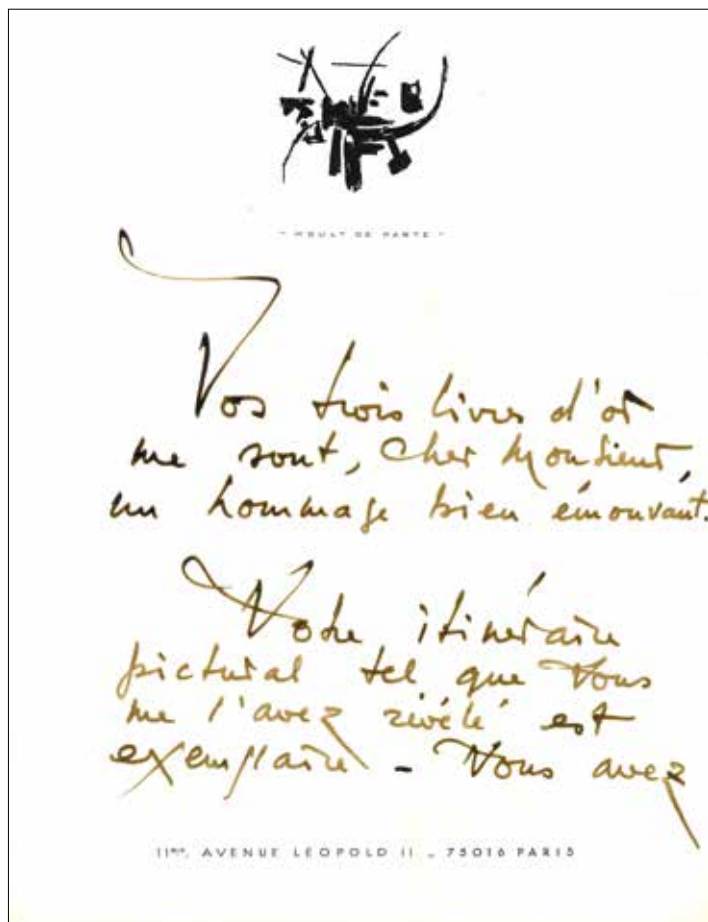 Vos trois livres d'or
me sont, cher Monsieur,
un hommage bien émouvant.
Votre itinéraire
pictural tel que Vous
me l'avez révélé est
exemplaire - Vous avez
AVENUE LÉOPOLD II _ 75016 PARIS